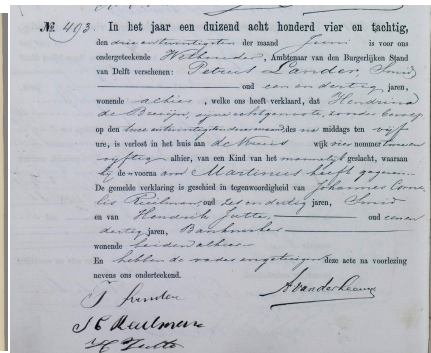 № 493. In het jaar een duizend acht honderd vier en tachtig,
den drie en twintigsten der maand Juni is voor ons
ondergeteekende Wethouder, Ambtenaar van den Burgerlijken Stand
van Delft verschenen: Petrus Lander, Smid
oud een en dertig jaren,
wonende alhier, welke ons heeft verklaard, dat Hendrina
de Bruijn, zijne echtgenoote, zonder beroep
op den twee en twintigsten dezer maand des na middags ten vijf
ure, is verlost in het huis aan wijk vier nommer twee en
vijftig alhier, van een Kind van het mannelijk geslacht, waaraan
hij de voornaam Martinus heeft gegeven.
De gemelde verklaring is geschied in tegenwoordigheid van Johannes Corne-
lis oud zes en dertig jaren, Smid
en van Hendrik Jutte, oud een en
dertig jaren,
wonende beiden alhier
En hebben de vader en getuigen deze acte na voorlezing
nevens ons onderteekend.
P Lander
A van der
J C
H Jutte